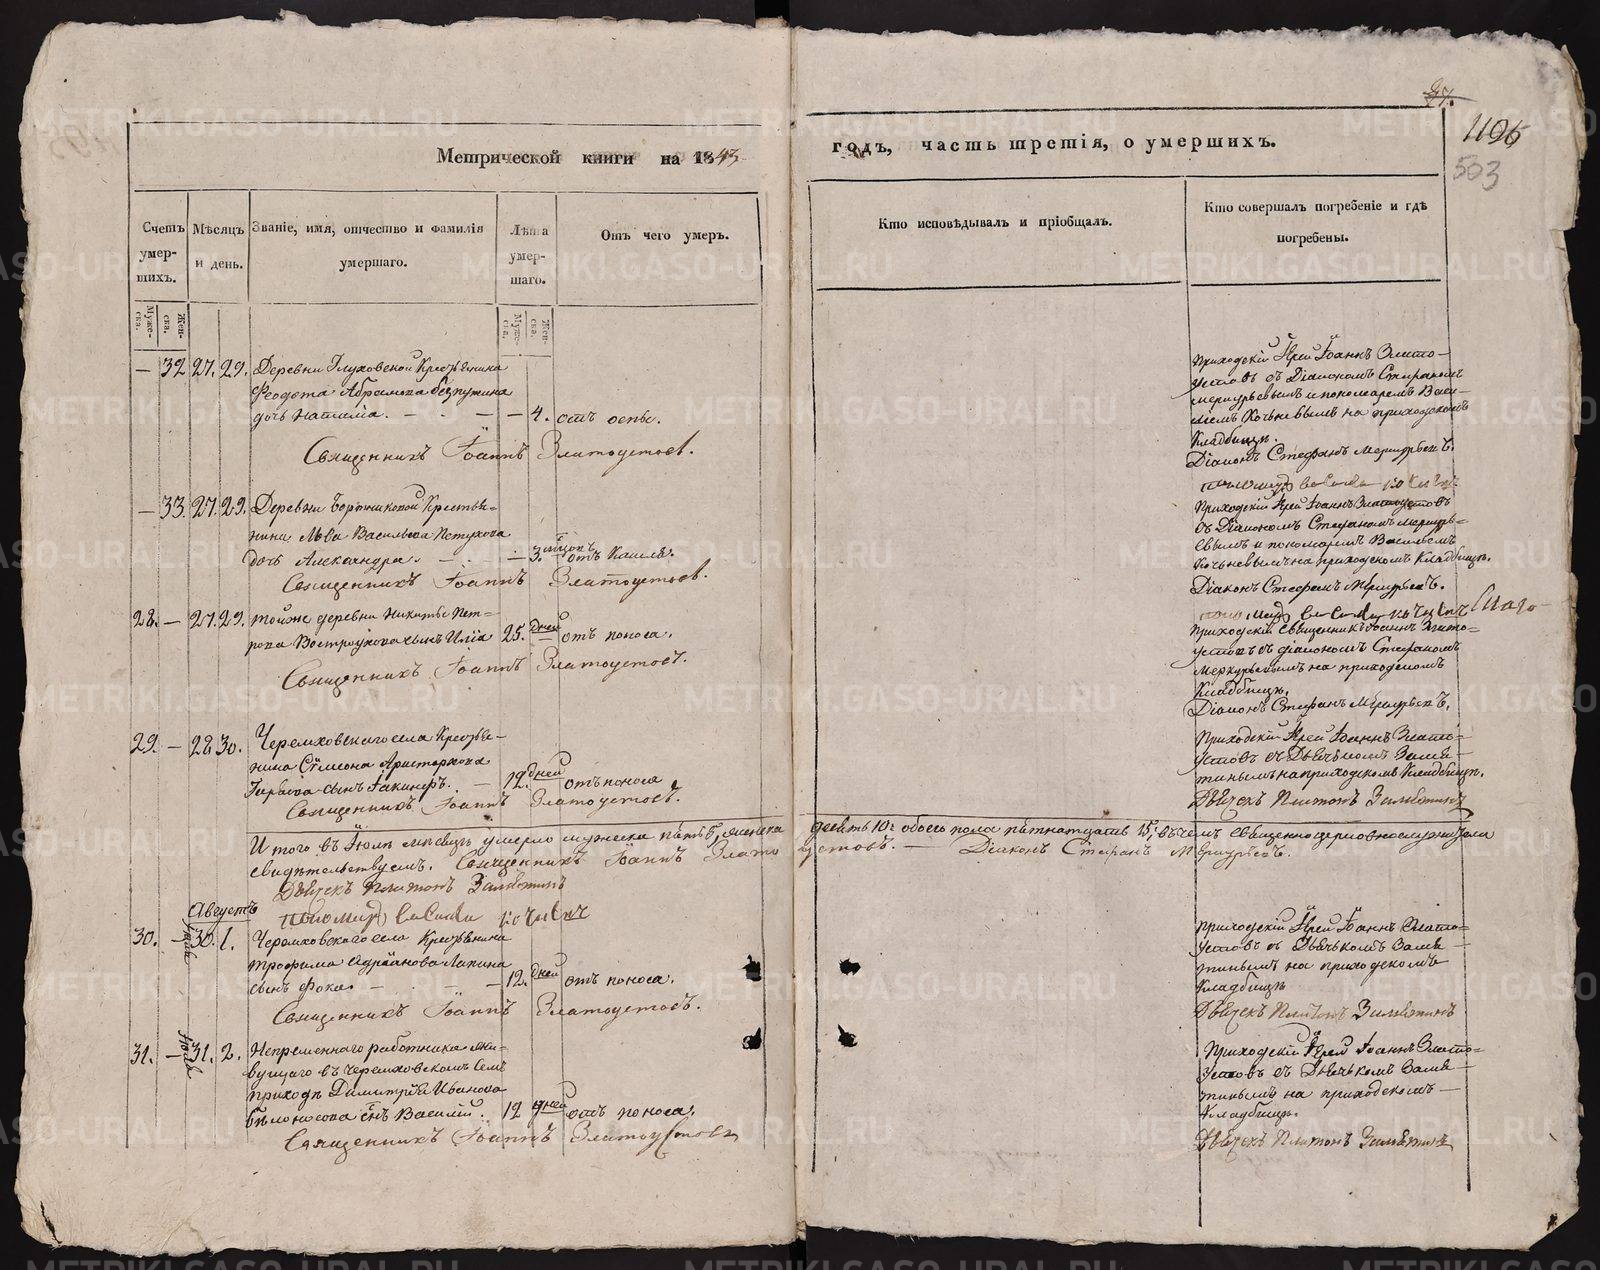 27.
1106
503
Метрической книги на 1843
годъ, часть третія, о умершихъ.
Счетъ умер-
шихъ.
Мѣсяцъ
и день.
Званіе, имя, отчество и фамилія
умершаго.
Лѣта
умер-
шаго.
Отъ чего умеръ.
Кто исповѣдывалъ и пріобщалъ.
Кто совершалъ погребеніе и гдѣ
погребены.
Муже-
ска.
Жен-
ска.
Муже-
ска.
Жен-
ска.
— 32 27. 29. Деревни Глуховской Крестьянина
Феодота Абрамова
дочь — 4. отъ оспы.
Священникъ Іоаннъ Златоустовъ.
Приходскій Іерей Іоаннъ Злато-
устовъ съ Діакономъ Стефаномъ
Меркурьевымъ и пономаремъ Васи-
на приходскомъ
Кладбищѣ.
Діаконъ Стефанъ Меркурьевъ.
— 33. 27. 29. Деревни Крестья-
нина Льва Васильева Петухова
дочь Александра. — 3. отъ Кашля.
Священникъ Іоаннъ Златоустовъ.
Приходскій Іерей Іоаннъ Златоустовъ
съ Діакономъ Стефаномъ Меркурь-
евымъ и пономаремъ Васильемъ
на приходскомъ Кладбищѣ.
Діаконъ Стефанъ Меркурьевъ.
28. — 27. 29. тойже деревни Никиты Пет-
рова сынъ Илія 25. дней отъ поноса.
Священникъ Іоаннъ Златоустовъ.
Приходскій Священникъ Іоаннъ Злато-
устовъ съ діакономъ Стефаномъ
Меркурьевымъ на приходскомъ
Кладбищѣ.
Діаконъ Стефанъ Меркурьевъ.
29. — 28 30. Черемховскаго села Крестья-
нина Сѵмеона Аристархова
сынъ Іакинфъ. — 12. дней отъ поноса
Священникъ Іоаннъ Златоустовъ.
Приходскій Іерей Іоаннъ Злато-
устовъ съ Дьячкомъ Замя-
тинымъ на приходскомъ Кладбищѣ.
Дьячекъ Платонъ Замятинъ
Итого въ Іюлѣ мѣсяцѣ умерло мужеска пять 5, женска десять 10 обоего пола пятнатцать 15; въ чемъ священноцерковнослужители
свидѣтельствуемъ. Священникъ Іоаннъ Златоустовъ. — Діаконъ Стефанъ Меркурьевъ.
Дьячекъ Платонъ Замятинъ
Августъ
30. — 30. 1. Черемховскаго села Крестьянина
трофима Адріанова Лапина
сынъ Фока. — 12. дней отъ поноса.
Священникъ Іоаннъ Златоустовъ.
Приходскій Іерей Іоаннъ Злато-
устовъ съ Дьячькомъ Замя-
тинымъ на приходскомъ
Кладбищѣ
Дьячекъ Платонъ Замятинъ
Іюль
31. — 31. 2. Непременнаго работника жи-
вущаго въ Черемховскомъ Селѣ
приходѣ Димитрія Иванова
Бѣлоносова сынъ Василій. 12 дней отъ поноса.
Священникъ Іоаннъ Златоустовъ
Приходскій Іерей Іоаннъ Злато-
устовъ съ Дьячькомъ Замя-
тинымъ на приходскомъ
Кладбищѣ.
Дьячекъ Платонъ Замятинъ
METRIKI.GASO-URAL.RU